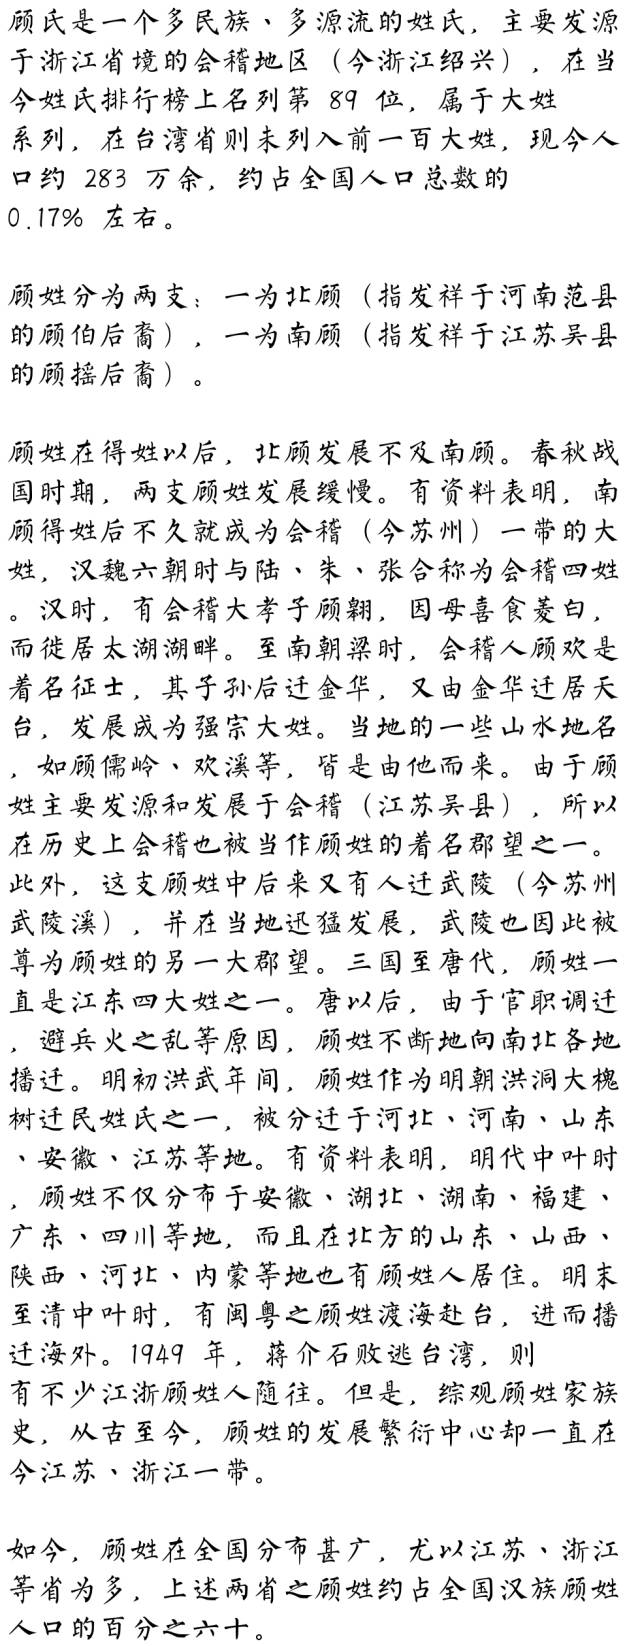 顾氏是一个多民族、多源流的姓氏，主要发源
于浙江省境的会稽地区（今浙江绍兴），在当
今姓氏排行榜上名列第 89 位，属于大姓
系列，在台湾省则未列入前一百大姓，现今人
口约 283 万余，约占全国人口总数的
0.17% 左右。

顾姓分为两支：一为北顾（指发祥于河南范县
的顾伯后裔），一为南顾（指发祥于江苏吴县
的顾摇后裔）。

顾姓在得姓以后，北顾发展不及南顾。春秋战
国时期，两支顾姓发展缓慢。有资料表明，南
顾得姓后不久就成为会稽（今苏州）一带的大
姓，汉魏六朝时与陆、朱、张合称为会稽四姓
。汉时，有会稽大孝子顾翱，因母喜食菱白，
而徙居太湖湖畔。至南朝梁时，会稽人顾欢是
着名征士，其子孙后迁金华，又由金华迁居天
台，发展成为强宗大姓。当地的一些山水地名
，如顾儒岭、欢溪等，皆是由他而来。由于顾
姓主要发源和发展于会稽（江苏吴县），所以
在历史上会稽也被当作顾姓的着名郡望之一。
此外，这支顾姓中后来又有人迁武陵（今苏州
武陵溪），并在当地迅猛发展，武陵也因此被
尊为顾姓的另一大郡望。三国至唐代，顾姓一
直是江东四大姓之一。唐以后，由于官职调迁
，避兵火之乱等原因，顾姓不断地向南北各地
播迁。明初洪武年间，顾姓作为明朝洪洞大槐
树迁民姓氏之一，被分迁于河北、河南、山东
、安徽、江苏等地。有资料表明，明代中叶时
，顾姓不仅分布于安徽、湖北、湖南、福建、
广东、四川等地，而且在北方的山东、山西、
陕西、河北、内蒙等地也有顾姓人居住。明末
至清中叶时，有闽粤之顾姓渡海赴台，进而播
迁海外。1949 年，蒋介石败逃台湾，则
有不少江浙顾姓人随往。但是，综观顾姓家族
史，从古至今，顾姓的发展繁衍中心却一直在
今江苏、浙江一带。

如今，顾姓在全国分布甚广，尤以江苏、浙江
等省为多，上述两省之顾姓约占全国汉族顾姓
人口的百分之六十。